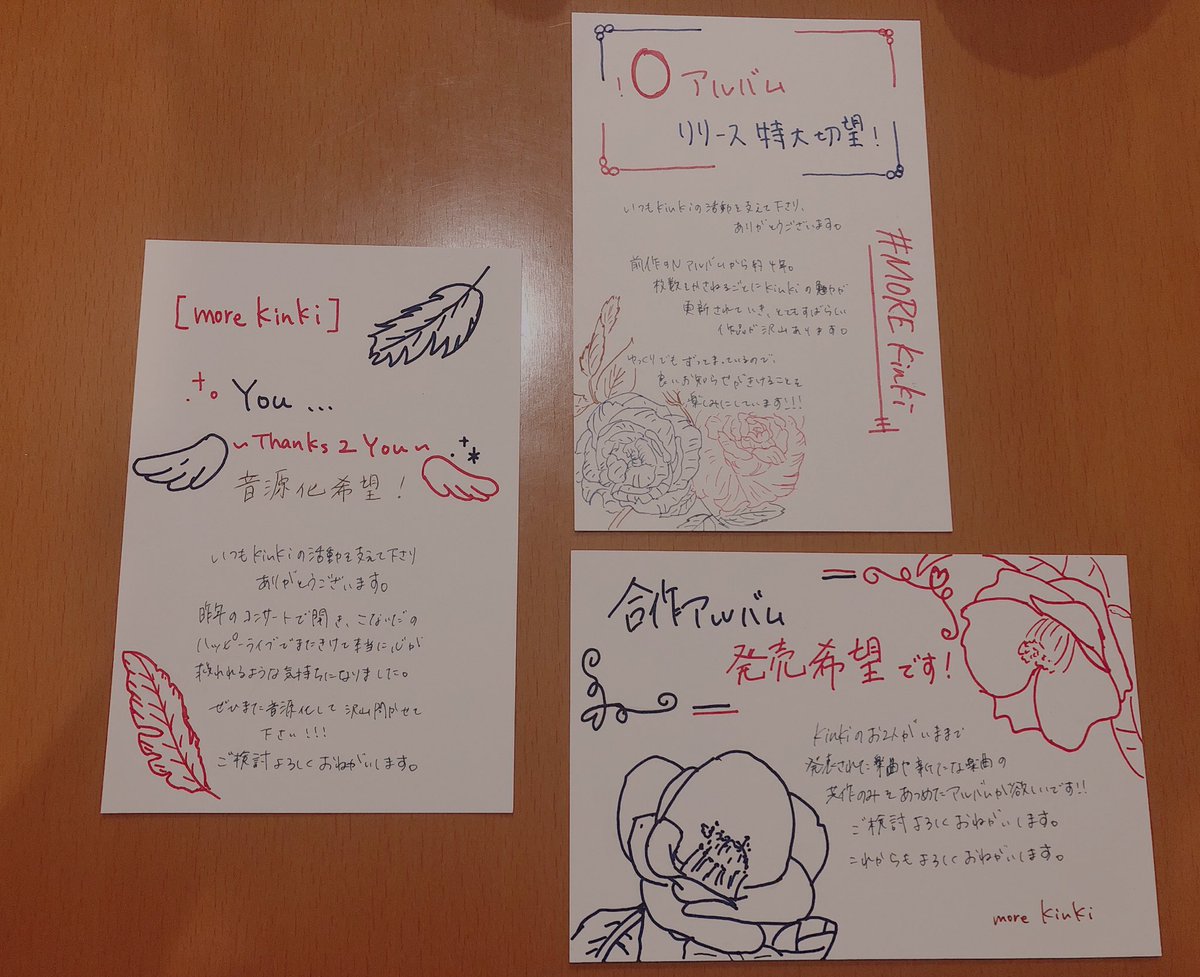 [more kinki]
You...
~Thanks 2 You~
音源化希望!
いつもkinkiの活動を支えて下さり
ありがとうございます。
昨年のコンサートで聞き、こないだの
ハッピーライブでまたきけて本当に心が
救われるような気持ちになりました。
ぜひまた音源化して沢山聞かせて
下さい!!!
ご検討よろしくおねがいします。
!Oアルバム
リリース特大切望!
いつもkinkiの活動を支えて下さり、
ありがとうございます。
前作のNアルバムから約4年。
枚数をかさねるごとにkinkiの魅力が
更新されていき、とてもすばらしい
作品が沢山あります。
ゆっくりでもずってまっているので、
良いお知らせがきけることを
楽しみにしています!!!
#MORE kinki
合作アルバム
発売希望です!
kinkiのお2人がいままで
発表された楽曲や新たな楽曲の
共作のみをあつめたアルバムが欲しいです!!
ご検討よろしくおねがいします。
これからもよろしくおねがいします。
more kinki